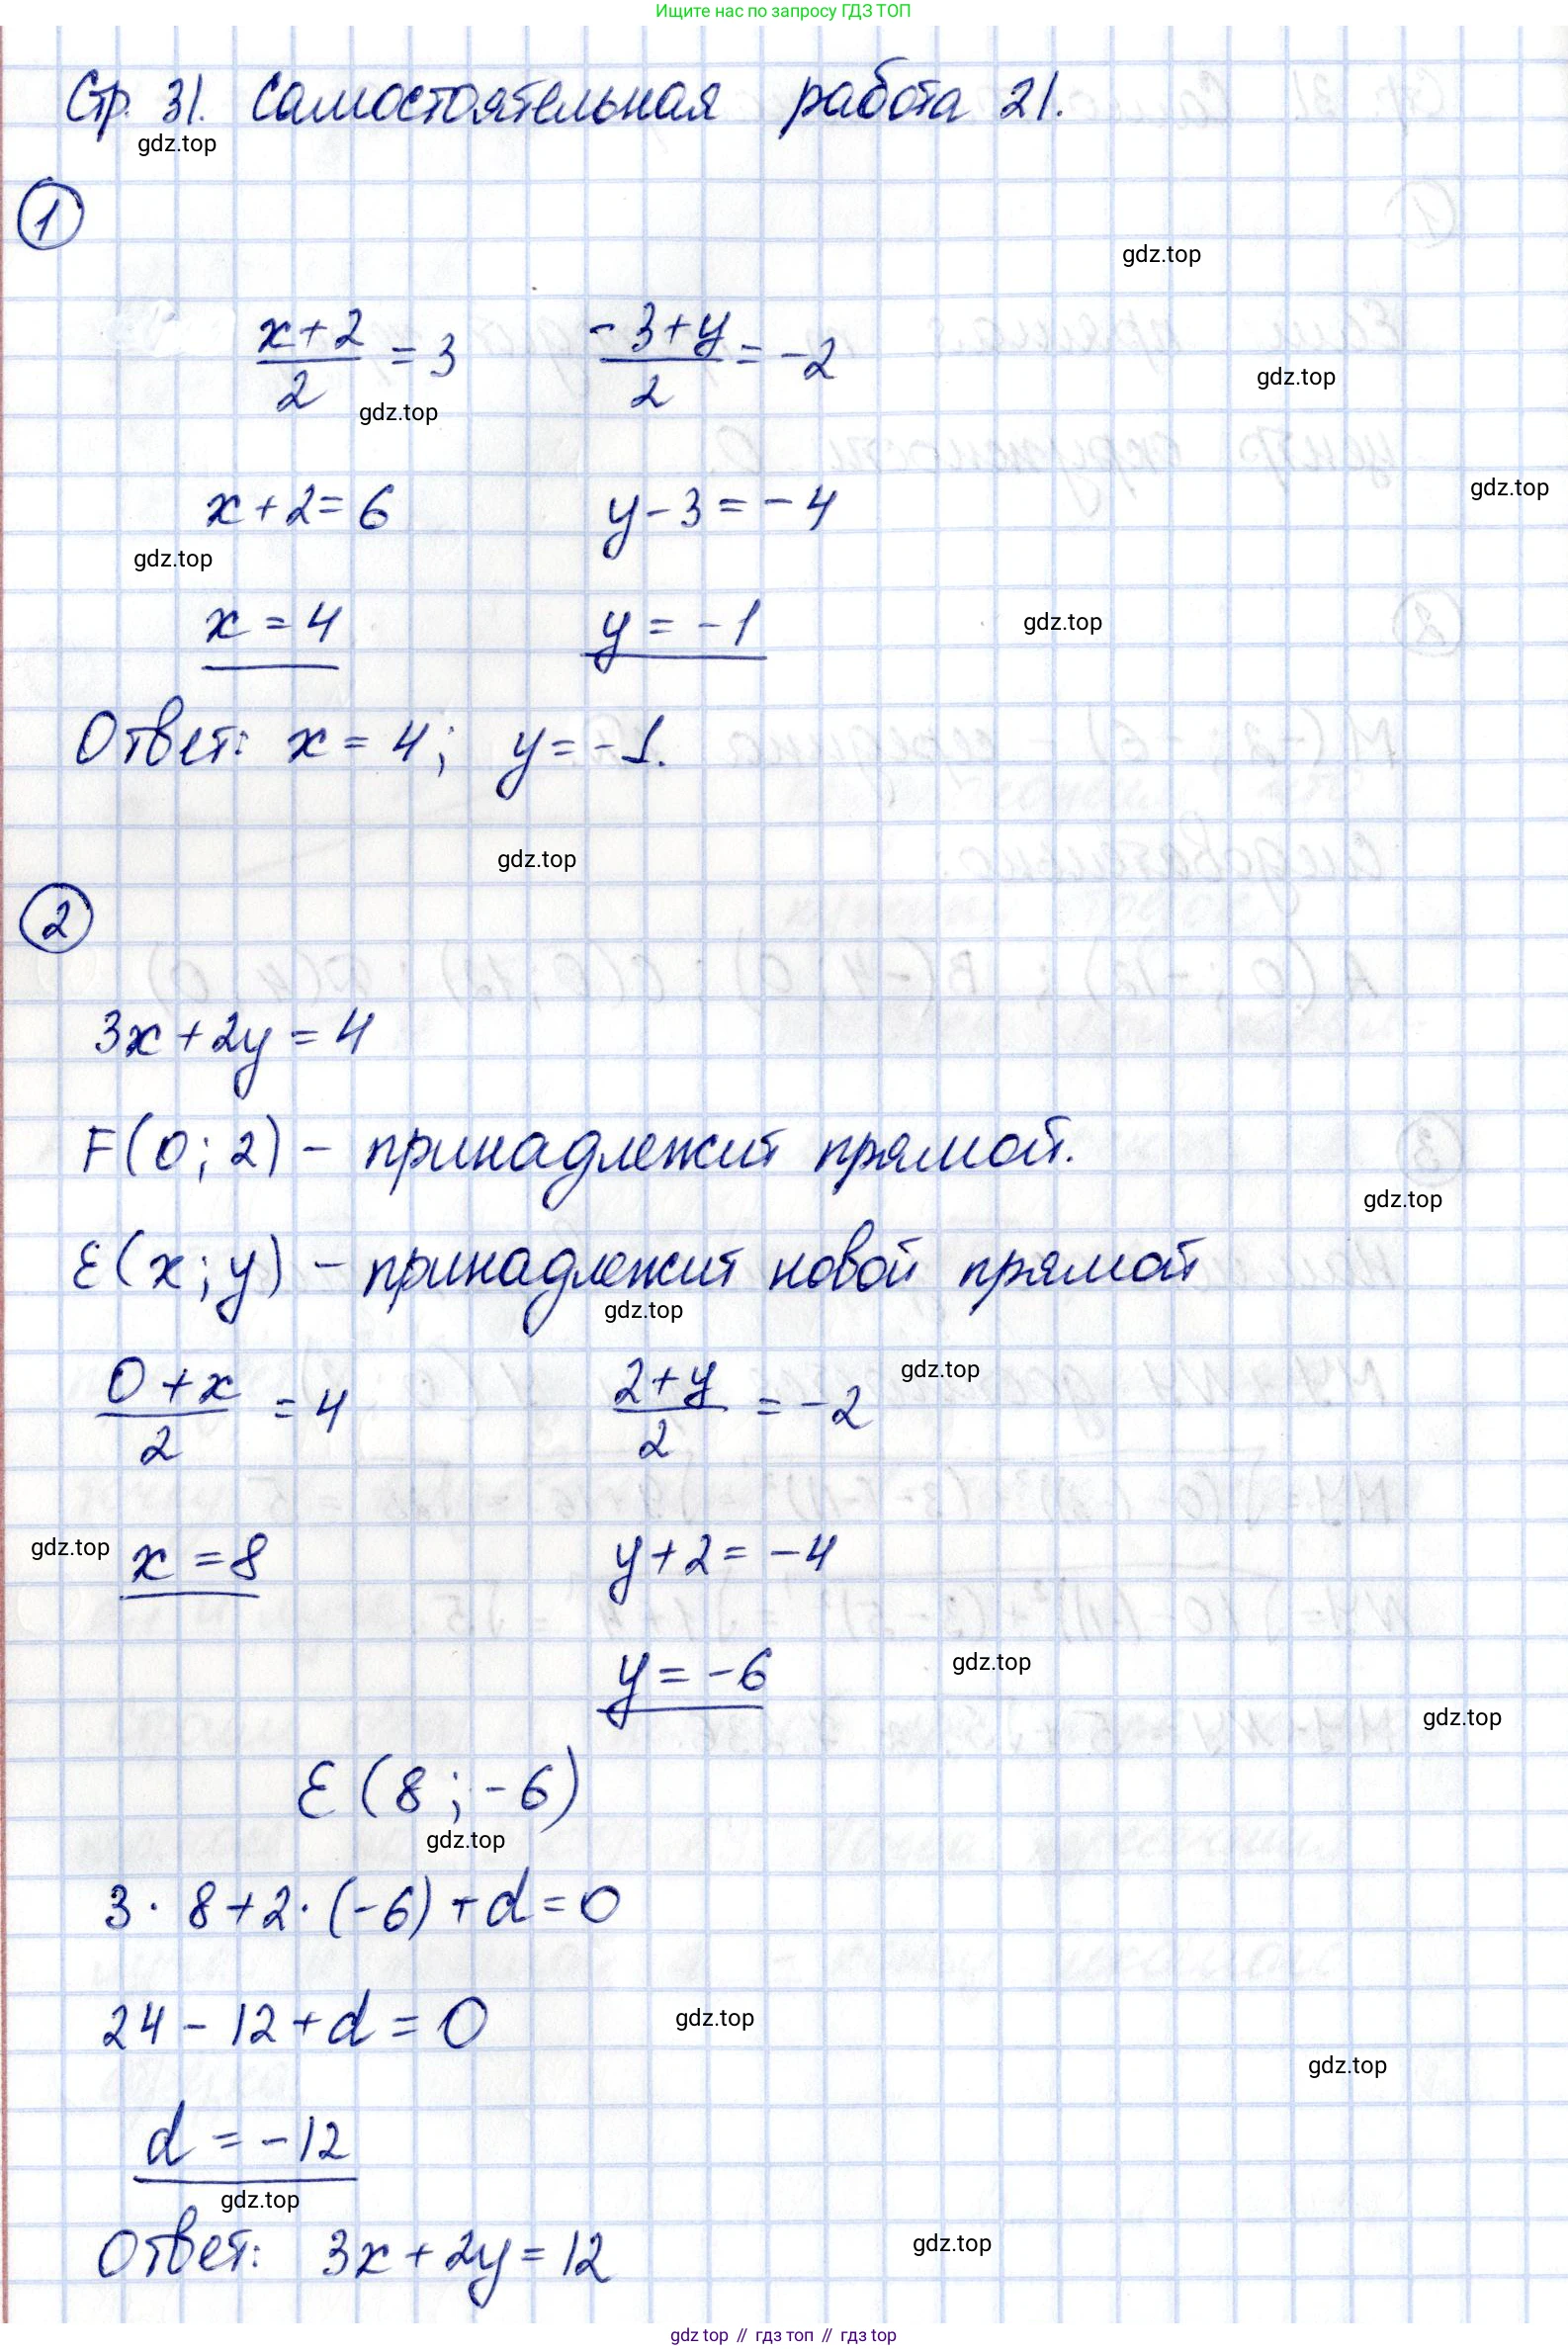 Ищите нас по запросу ГДЗ ТОП
Стр. 31. Самостоятельная работа 21.
gdz.top
1
gdz.top
(x+2)/2 = 3   (-3+y)/2 = -2
gdz.top
gdz.top
x+2=6   y-3=-4
gdz.top
gdz.top
x=4   y=-1
gdz.top
Ответ: x=4; y=-1.
gdz.top
2
3x+2y=4
F(0;2) – принадлежит прямой.
gdz.top
E(x;y) – принадлежит новой прямой
gdz.top
(0+x)/2 = 4   (2+y)/2 = -2
gdz.top
gdz.top
x=8   y+2=-4
y=-6
gdz.top
gdz.top
E(8;-6)
gdz.top
3·8+2·(-6)+d=0
24-12+d=0
gdz.top
gdz.top
d=-12
gdz.top
Ответ: 3x+2y=12
gdz.top
gdz top // гдз топ // гдз top